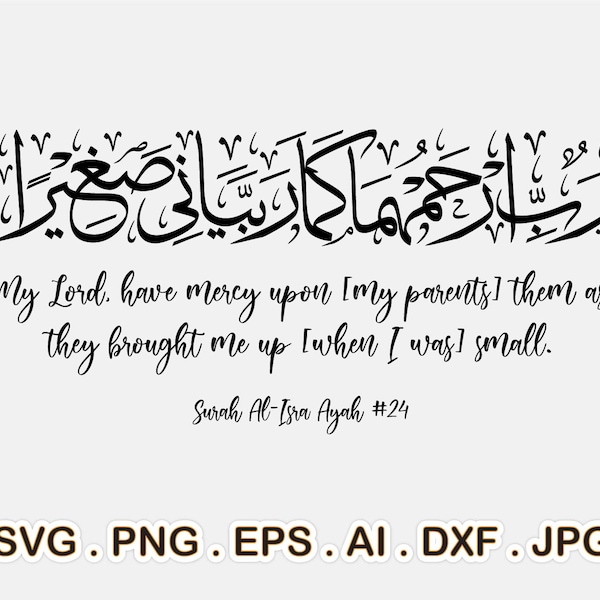 رَبِّ ارْحَمْهُمَا كَمَا رَبَّيَانِي صَغِيرًا
My Lord, have mercy upon [my parents] them as
they brought me up [when I was] small.
Surah Al-Isra Ayah #24
SVG . PNG . EPS . AI . DXF . JPG